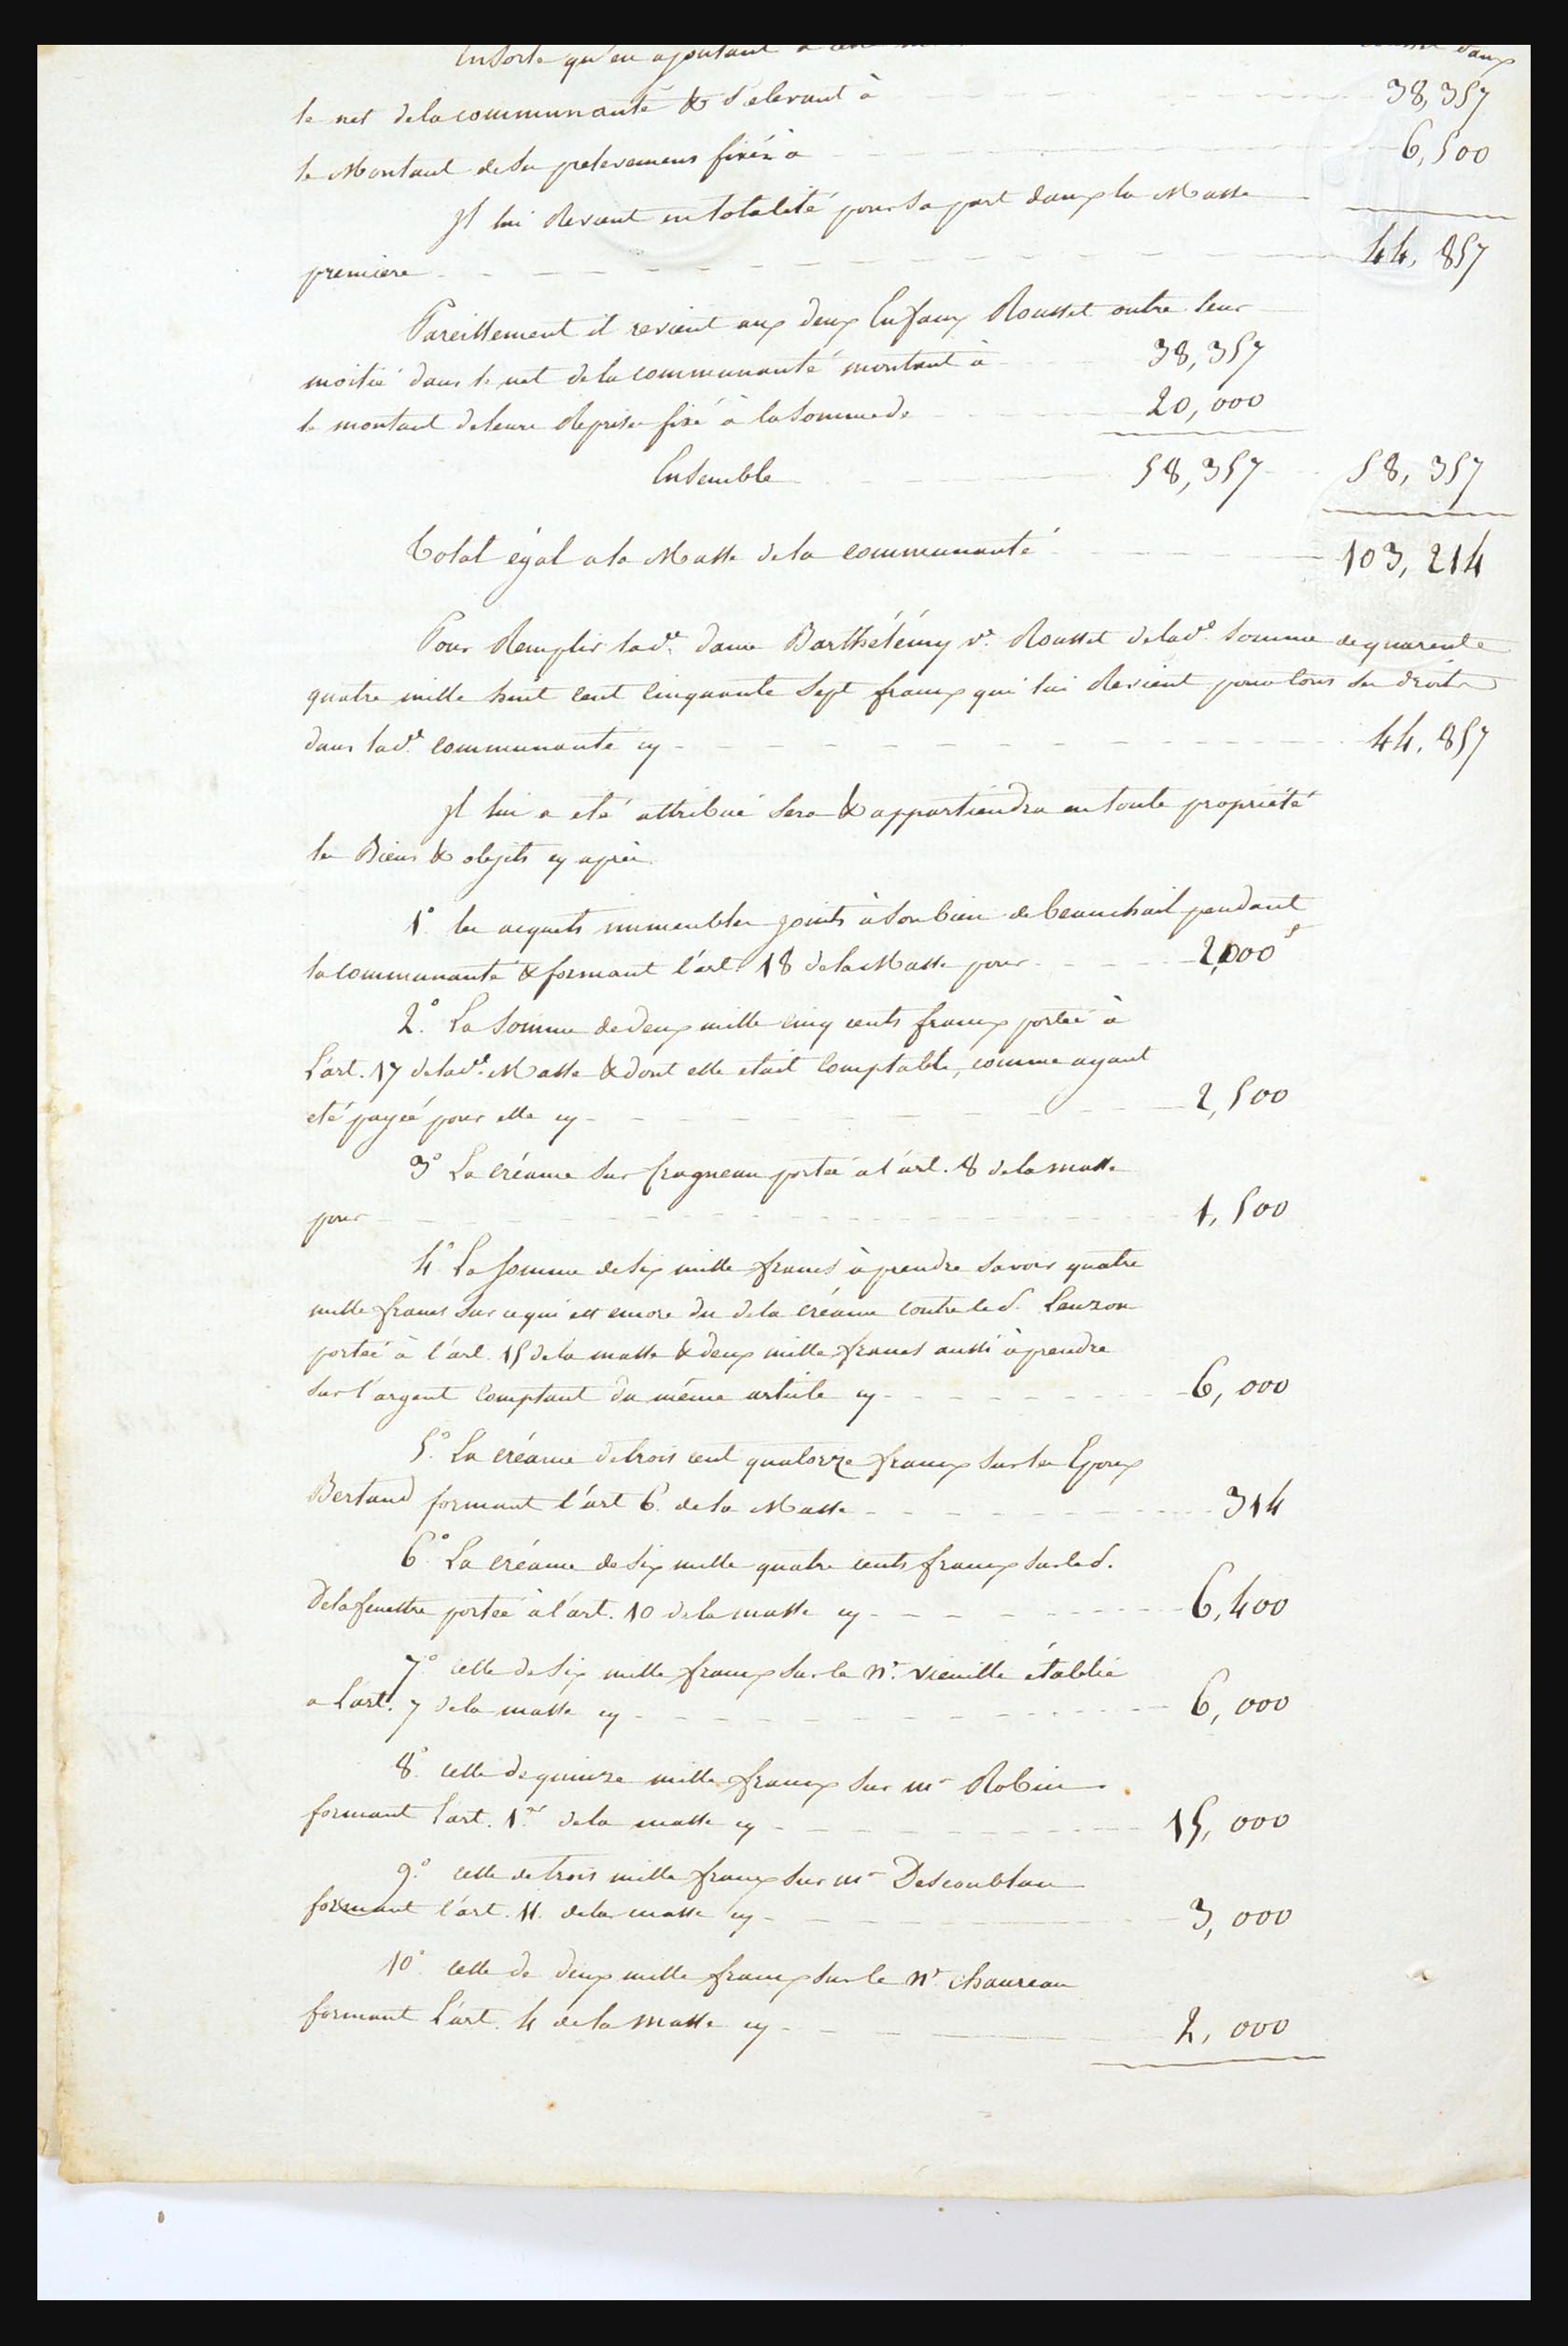 Ensorte qu'en ajoutant a
le net de la communauté & s'elevant à 38,357
le Montant de ses prelevemens fixés a 6,500
Jl lui Revient en totalité pour sa part dans la Masse
premiere 44,857
Pareillement il revient aux deux Enfans Rousset outre leur
moitié dans le net de la communauté montant à 38,357
le montant de leurs Reprises fixé à la somme de 20,000
Ensemble 58,357 58,357
Total égal a la Masse de la communauté 103,214
Pour Remplir lade. dame Barthélémy ve. Rousset de lade. somme de quarente
quatre mille huit cent cinquante sept francs qui lui Revient pour tous ses droits
dans lade. communauté cy 44,857
Jl lui a eté attribué sera & appartiendra en toute propriété
les Biens & objets cy après
1° les acquets immeubles joints à son bien de beauchail pendant
la communauté & formant l'art. 18 de la Masse pour 2,000f
2° La somme de deux mille cinq cents francs portée à
L'art. 17 de lade. Masse & dont elle etait comptable, comme ayant
eté payée pour elle cy 2,500
3° La créance sur fragneau portée a l'art. 8 de la masse
pour 1,500
4° La somme de six mille francs à prendre savoir quatre
mille francs sur ce qui est encore du de la créance contre le s. Lauzon
portée à l'art. 15 de la masse & deux mille francs aussi à prendre
sur l'argent comptant du même article cy 6,000
5° La créance de trois cent quatorze francs sur les Epoux
Bertaud formant l'art 6 de la Masse 314
6° La créance de six mille quatre cents francs sur le s.
Delafenettre portée à l'art. 10 de la masse cy 6,400
7° celle de six mille francs sur le nr. vieuille établie
a L'art. 7 de la masse cy 6,000
8° celle de quinze mille francs sur mr Robin
formant l'art. 1er de la masse cy 15,000
9° celle de trois mille francs sur mr Descoublau
formant l'art. 11. de la masse cy 3,000
10° celle de deux mille francs sur le nr chaureau
formant L'art. 4 de la Masse cy 2,000